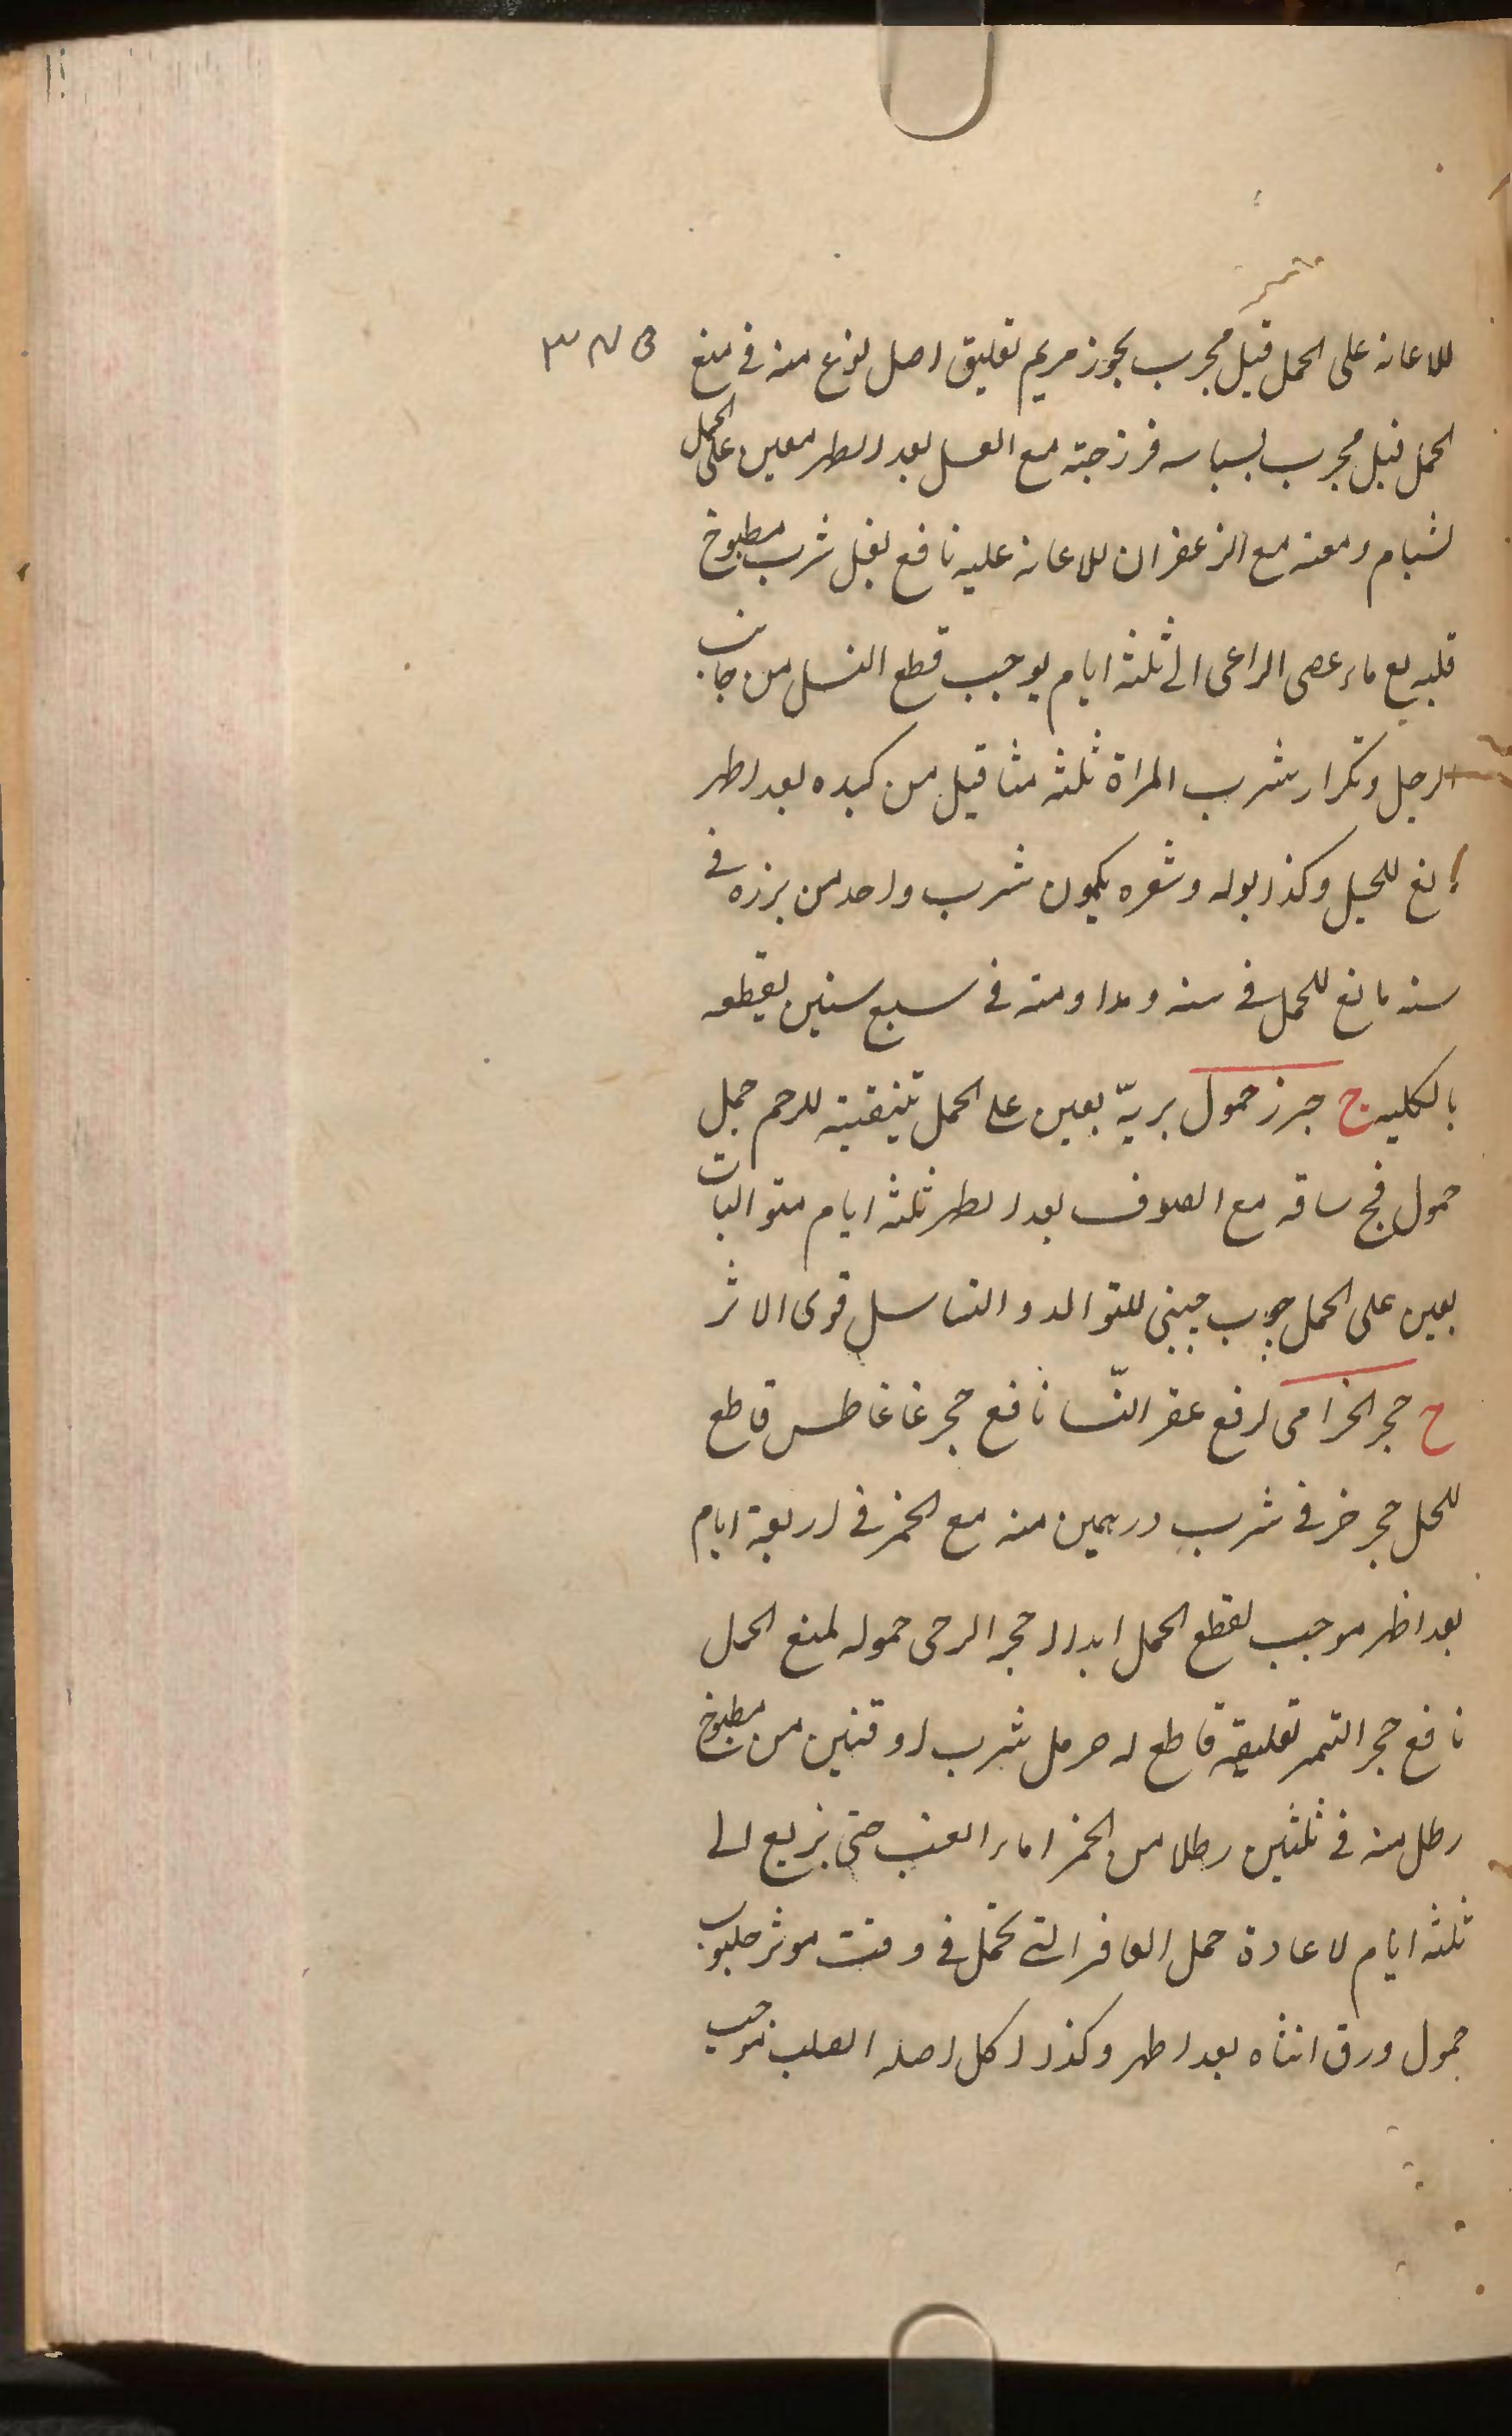 للاعانه على الحمل قيل مجرب بخور مريم تعليق اصل نوع منه فى منع
الحمل قيل مجرب بسباسه فرزجته مع العسل بعد الطهر معين على الحمل
لشبام دمعته مع الزعفران للاعانه عليه نافع بغل شرب مطبوخ
قلبه مع ماء عصى الراعى الى ثلثه ايام يوجب قطع النسل من جانب
الرجل وتكرار شرب المراة ثلثه مثاقيل من كبده بعد اطهر
مانع للحبل وكذا بوله وشعره يكون شرب واحد من بزره فى
سنه مانع للحمل فى سنه ومداومته فى سبع سنين يقطعه
بالكليه ج جزر حمول بريّه يعين على الحمل بتنقيته للرحم جمل
حمول فج ساقه مع الصوف بعد الطهر ثلثه ايام متواليات
يعين على الحمل جوب جينى للتوالد والتناسل قوى الاثر
ح حجر الخزامى لرفع عقر النّسا نافع حجر غاغاطس قاطع
للحمل حجر خزفى شرب درهمين منه مع الخمر فى اربعة ايام
بعد اطهر موجب لقطع الحمل ابدا حجر الرحى حموله لمنع الحمل
نافع حجر التمر تعليقه قاطع له حرمل شرب اوقتين من مطبوخ
رطل منه فى ثلثين رطلا من الخمر اماء العنب حتى يربع الى
ثلثه ايام لاعادة حمل العاقر التى تحمل فى وقت موثر حلبوب
حمول ورق انثاه بعد اطهر وكذا اكل اصله الصلب موجب